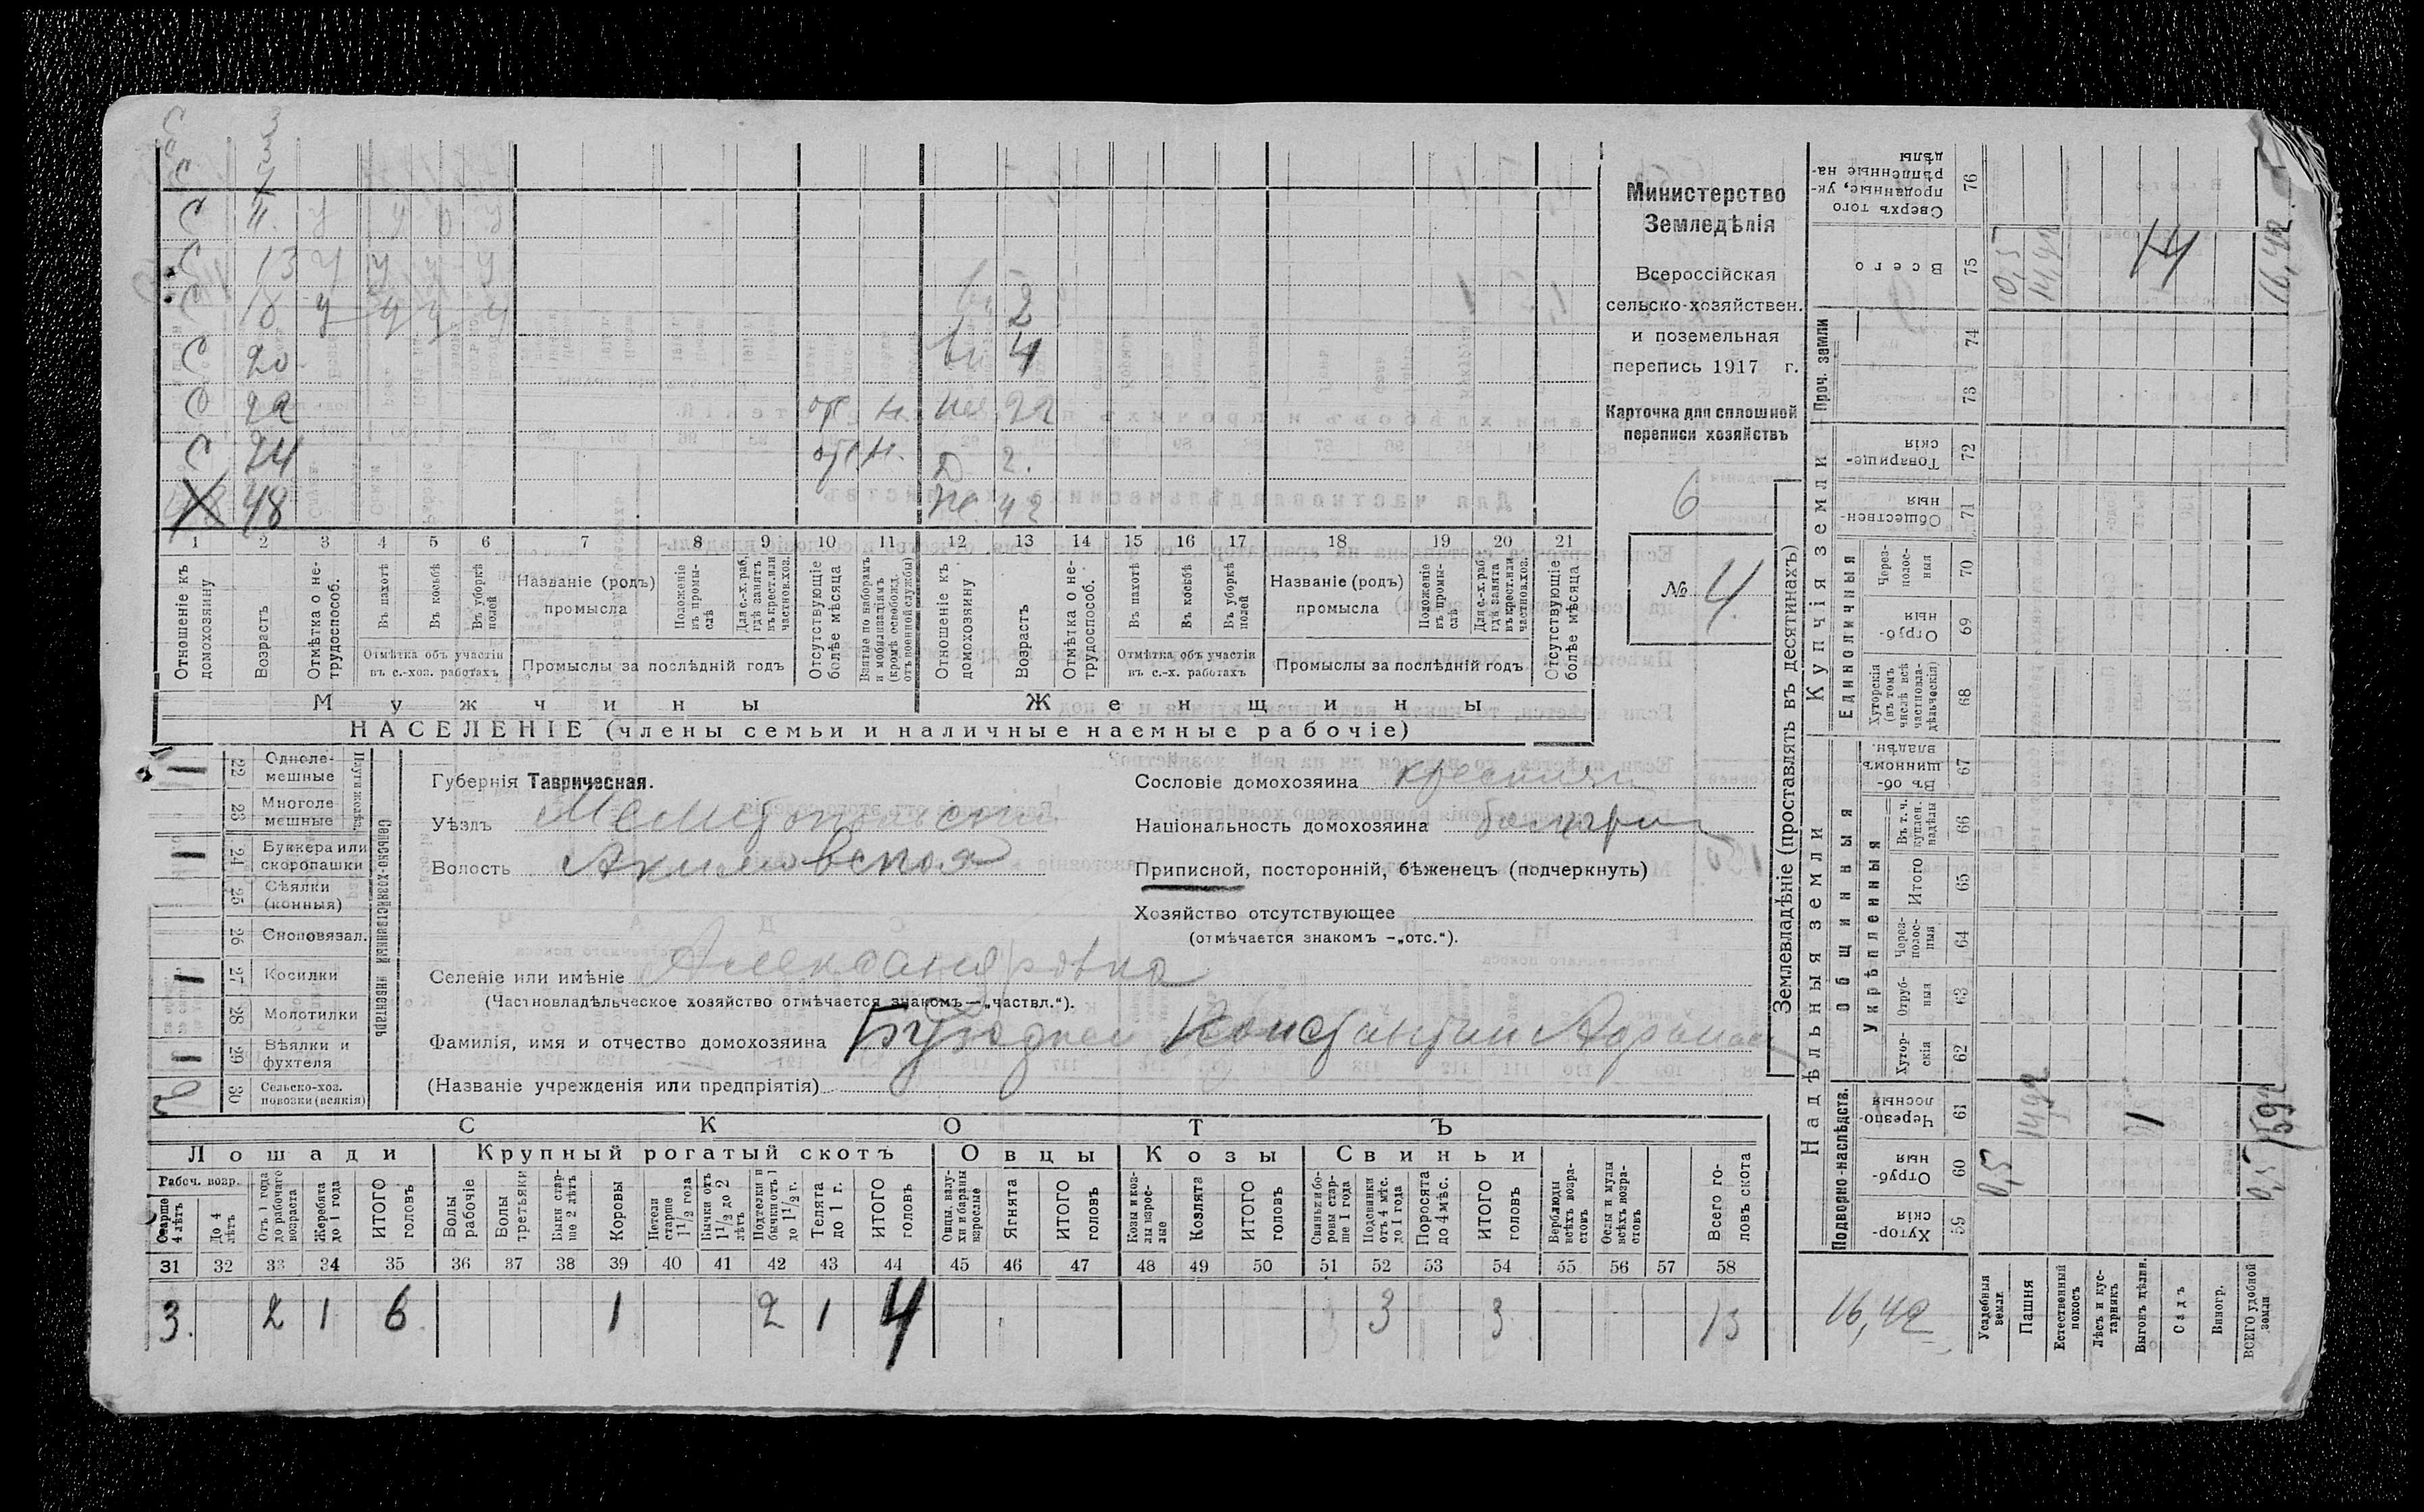 Министерство
Земледѣлія
Всероссійская
сельско-хозяйствен.
и поземельная
перепись 1917 г.
Карточка для сплошной
переписи хозяйствъ
6
№ 4.
С
С 11.
С 13 у у у у
С 18 у у у у 2
С 20 4
О 22 от н. 22
С 24 от. н. D 2.
Х 48 Ж. 42
1 2 3 4 5 6 7 8 9 10 11 12 13 14 15 16 17 18 19 20 21
Отношеніе къ домохозяину
Возрастъ
Отмѣтка о не-трудоспособ.
Въ пахотѣ
Въ косьбѣ
Въ уборкѣ полей
Отмѣтка объ участіи въ с.-хоз. работахъ
Названіе (родъ) промысла
Положеніе въ промы-слѣ
Для с.-х. раб. гдѣ занятъ въ крест. или частнов. хоз.
Промыслы за послѣдній годъ
Отсутствующіе болѣе мѣсяца
Взятые по наборамъ и мобилизаціямъ (кромѣ освобожд. отъ военной службы)
Отношеніе къ домохозяину
Возрастъ
Отмѣтка о не-трудоспособ.
Въ пахотѣ
Въ косьбѣ
Въ уборкѣ полей
Отмѣтка объ участіи въ с.-х. работахъ
Названіе (родъ) промысла
Положеніе въ промы-слѣ
Для с.-х. раб. гдѣ занята въ крест. или частнов. хоз.
Промыслы за послѣдній годъ
Отсутствующіе болѣе мѣсяца
Мужчины
Женщины
НАСЕЛЕНІЕ (члены семьи и наличные наемные рабочіе)
Сельско-хозяйственный инвентарь
22 Одноле-мешные 1
23 Многоле мешные
24 Буккера или скоропашки 1
25 Сѣялки (конныя)
26 Сноповязал.
27 Косилки 1
28 Молотилки
29 Вѣялки и фухтеля 1
30 Сельско-хоз. повозки (всякія) 2
Губернія Таврическая.
Уѣздъ Мелитопольскій
Волость Акимовская
Селеніе или имѣніе Александровка
(Частновладѣльческое хозяйство отмѣчается знакомъ—„частвл.“).
Фамилія, имя и отчество домохозяина Константин Афанас
(Названіе учрежденія или предпріятія)
Сословіе домохозяина крестьян
Національность домохозяина болгарин
Приписной, посторонній, бѣженецъ (подчеркнуть)
Хозяйство отсутствующее
(отмѣчается знакомъ –„отс.“).
СКОТЪ
Лошади
Крупный рогатый скотъ
Овцы
Козы
Свиньи
Рабоч. возр.
Старше 4 лѣтъ
До 4 лѣтъ
Отъ 1 года до рабочаго возраста
Жеребята до 1 года
ИТОГО головъ
Волы рабочіе
Волы третьяки
Быки стар-ше 2 лѣтъ
Коровы
Нетели старше 1 1/2 года
Бычки отъ 1 1/2 до 2 лѣтъ
Подтелки и бычки отъ 1 до 1 1/2 г.
Телята до 1 г.
ИТОГО головъ
Овцы, валу-хи и бараны взрослые
Ягнята
ИТОГО головъ
Козы и коз-лы взрос-лые
Козлята
ИТОГО головъ
Свиньи и бо-ровы стар-ше 1 года
Подсвинки отъ 4 мѣс. до 1 года
Поросята до 4 мѣс.
ИТОГО головъ
Верблюды всѣхъ возра-стовъ
Ослы и мулы всѣхъ возра-стовъ
Всего го-ловъ скота
31 32 33 34 35 36 37 38 39 40 41 42 43 44 45 46 47 48 49 50 51 52 53 54 55 56 57 58
3. 2 1 6 1 2 1 4 3 3 13
Землевладѣніе (проставлять въ десятинахъ)
Надѣльныя земли
Купчія земли
Проч. земли
Подворно-наслѣдств.
Общинныя
Укрѣпленныя
Единоличныя
59 Хутор-скія
60 Отруб-ныя
61 Черезпо-лосныя
62 Хутор-скія
63 Отруб-ныя
64 Через-полос-ныя
65 Итого
66 Въ т. ч. куплен. надѣлы
67 Въ об-щинномъ владѣн.
68 Хуторскія (въ томъ числѣ всѣ частновла-дѣльческія)
69 Отруб-ныя
70 Через-полос-ныя
71 Обществен-ныя
72 Товарище-скія
73
74
75 Всего
76 Сверхъ того проданные, ук-рѣпленные на-дѣлы
Усадебныя земли
Пашня
Естественный покосъ
Лѣсъ и кус-тарникъ
Выгонъ дѣлян.
Садъ
Виногр.
ВСЕГО удобной земли
0,5 0,5
14,92 1 1592
0,5 14,92 16,42
16,42